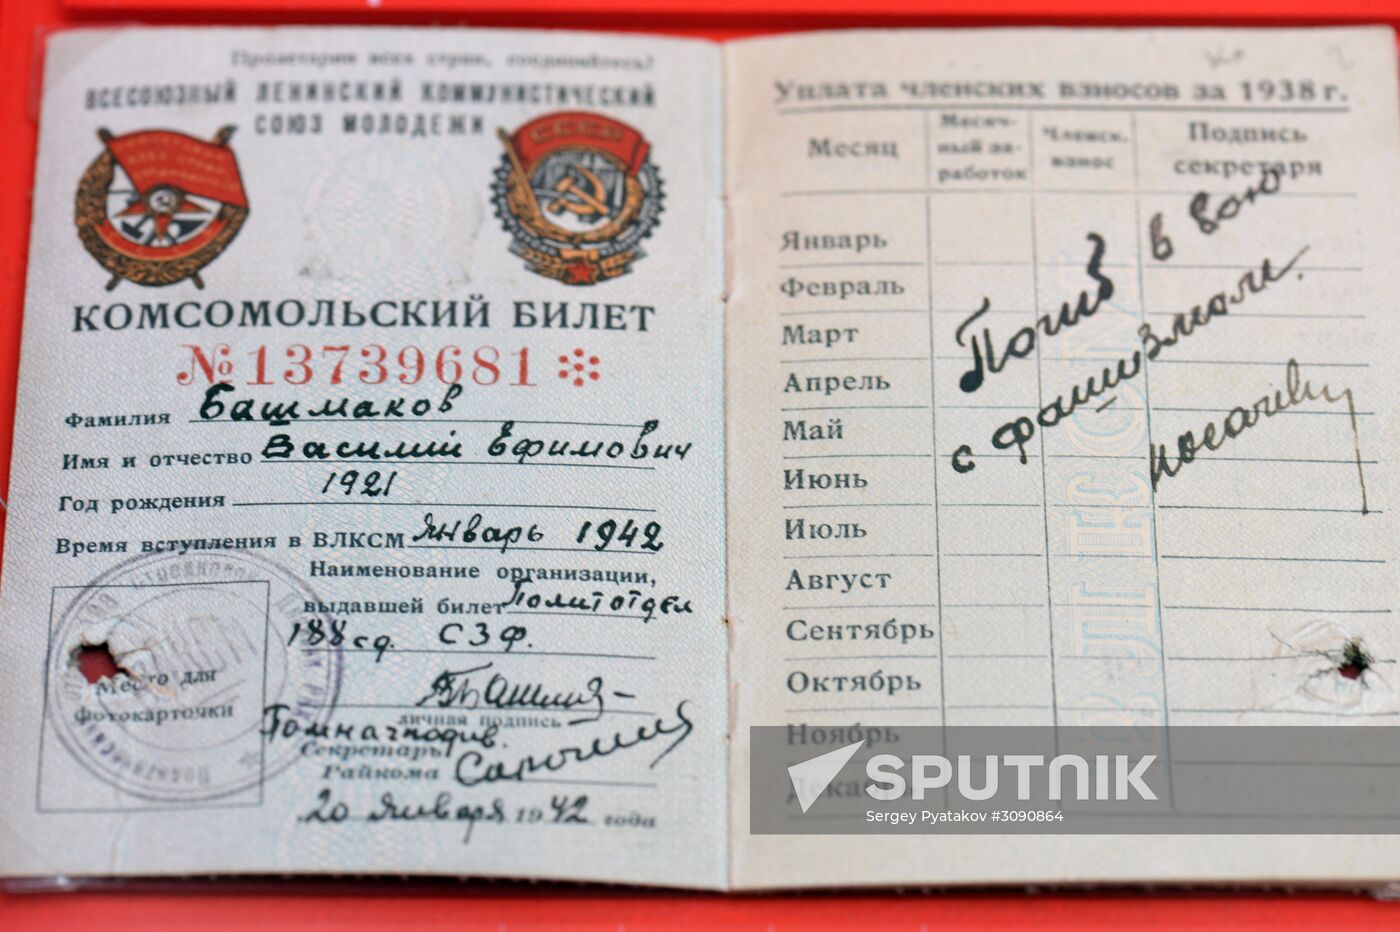 Пролетарии всех стран, соединяйтесь!
ВСЕСОЮЗНЫЙ ЛЕНИНСКИЙ КОММУНИСТИЧЕСКИЙ
СОЮЗ МОЛОДЕЖИ
СССР
КОМСОМОЛЬСКИЙ БИЛЕТ
№ 13739681
Фамилия Башмаков
Имя и отчество Василий Ефимович
Год рождения 1921
Время вступления в ВЛКСМ Январь 1942
Наименование организации,
выдавшей билет Политотдел
188 сд. СЗФ.
личная подпись
Помначподив.
Секретарь
Райкома
20 Января 1942 года
Место для
фотокарточки
Уплата членских взносов за 1938 г.
Месяц
Месяч-
ный за-
работок
Членск.
взнос
Подпись
секретаря
Январь
Февраль
Март
Апрель
Май
Июнь
Июль
Август
Сентябрь
Октябрь
Ноябрь
Декабрь
Погиб в бою
с фашизмом.
ВЛКСМ
SPUTNIK
Sergey Pyatakov #3090864